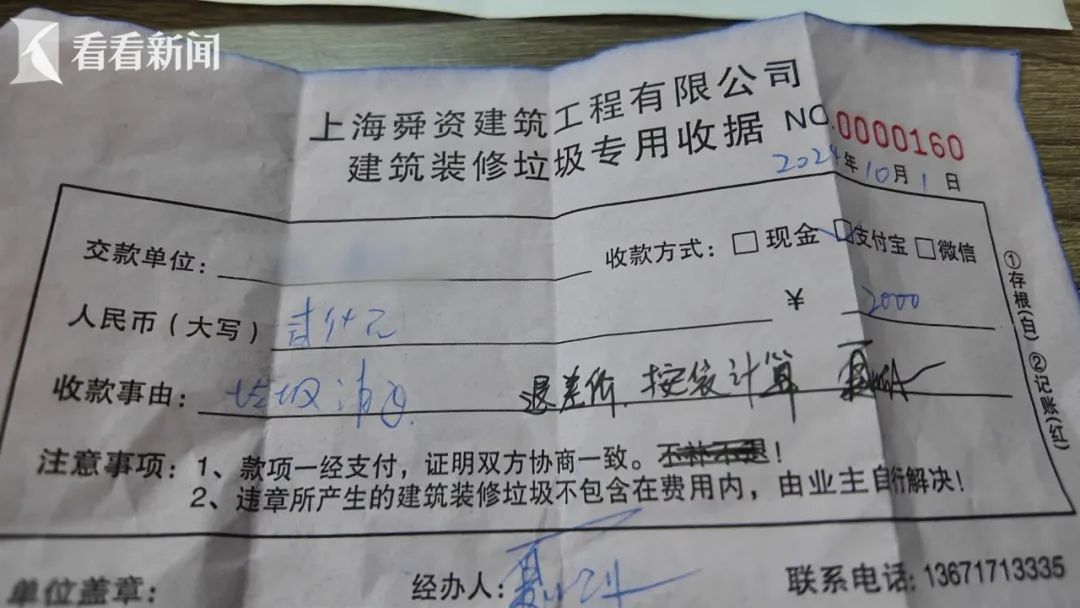 看看新闻
上海舜资建筑工程有限公司
建筑装修垃圾专用收据 NO.0000160
2024年10月1日
交款单位： 收款方式：□现金 □支付宝 □微信
人民币（大写） 贰仟元 ￥ 2000
收款事由： 垃圾清 退差价.按袋计算 夏
注意事项：1、款项一经支付，证明双方协商一致。不补不退！
2、违章所产生的建筑装修垃圾不包含在费用内，由业主自行解决！
单位盖章： 经办人：夏 联系电话：13671713335
①存根（白） ②记账（红）